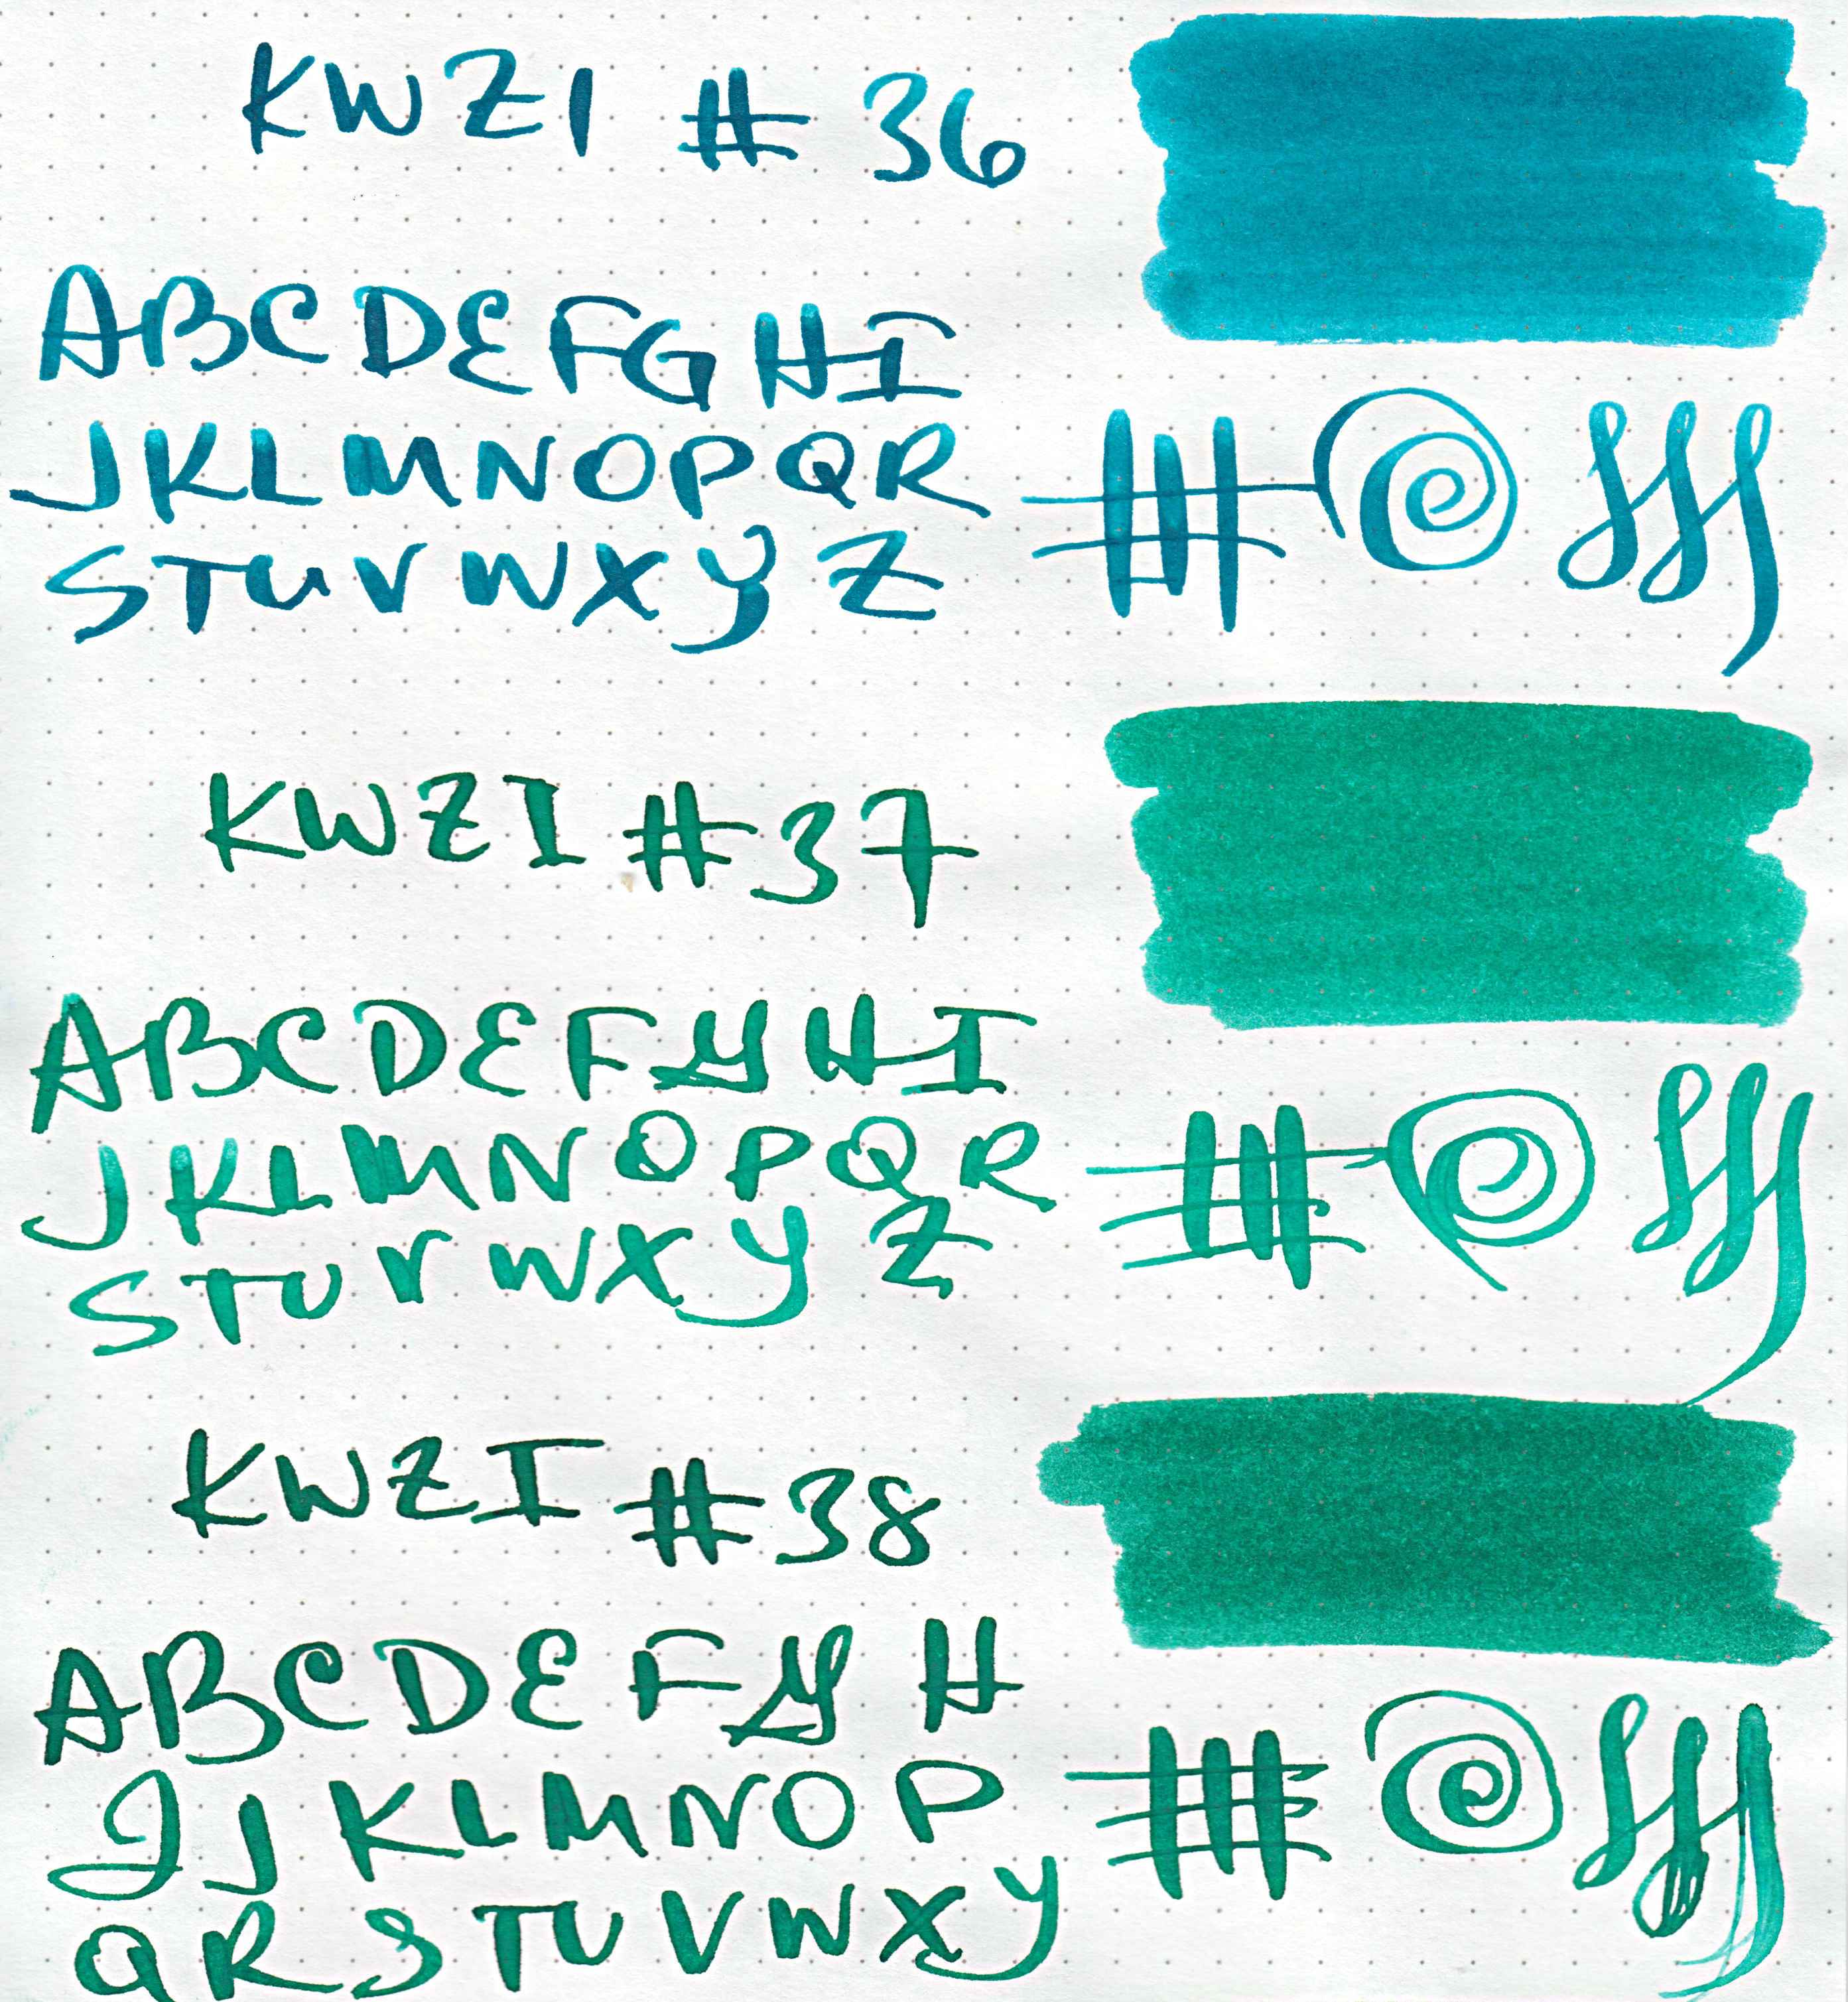 KWZI # 36
ABCDEFGHI
JKLMNOPQR
STUVWXYZ
KWZI #37
ABCDEFGHI
JKLMNOPQR
STUVWXYZ
KWZI #38
ABCDEFGH
IJKLMNOP
QRSTUVWXY